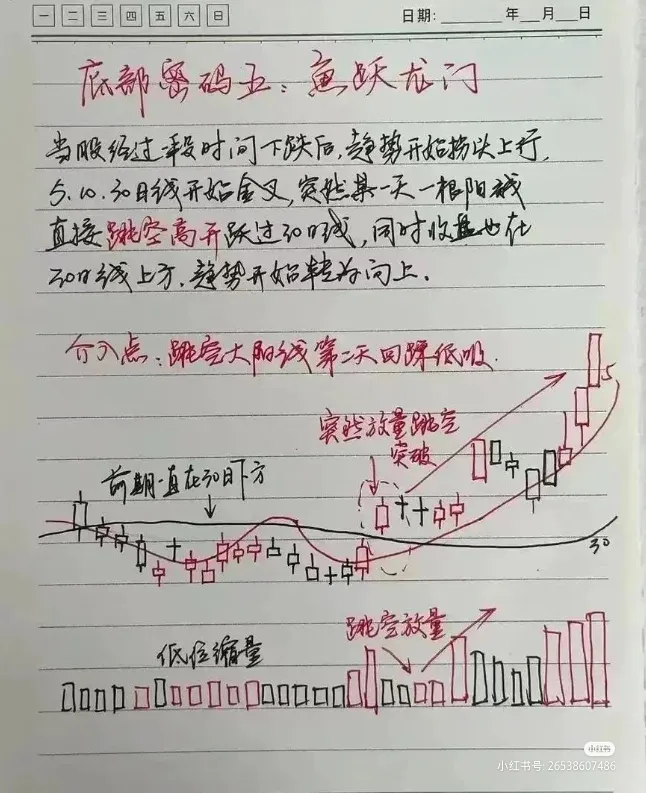 一 二 三 四 五 六 日
日期：____年__月__日
底部密码五：鱼跃龙门
当股经过一段时间下跌后，趋势开始拐头上行，
5.10.30日线开始金叉，突然某一天一根阳线
直接跳空高开跃过30日线，同时收盘也在
30日线上方，趋势开始转为向上。
介入点：跳空大阳线第二天回踩低吸.
突然放量跳空
突破
前期一直在30日下方
5
30
跳空放量
低位缩量
小红书
小红书号: 26538607486